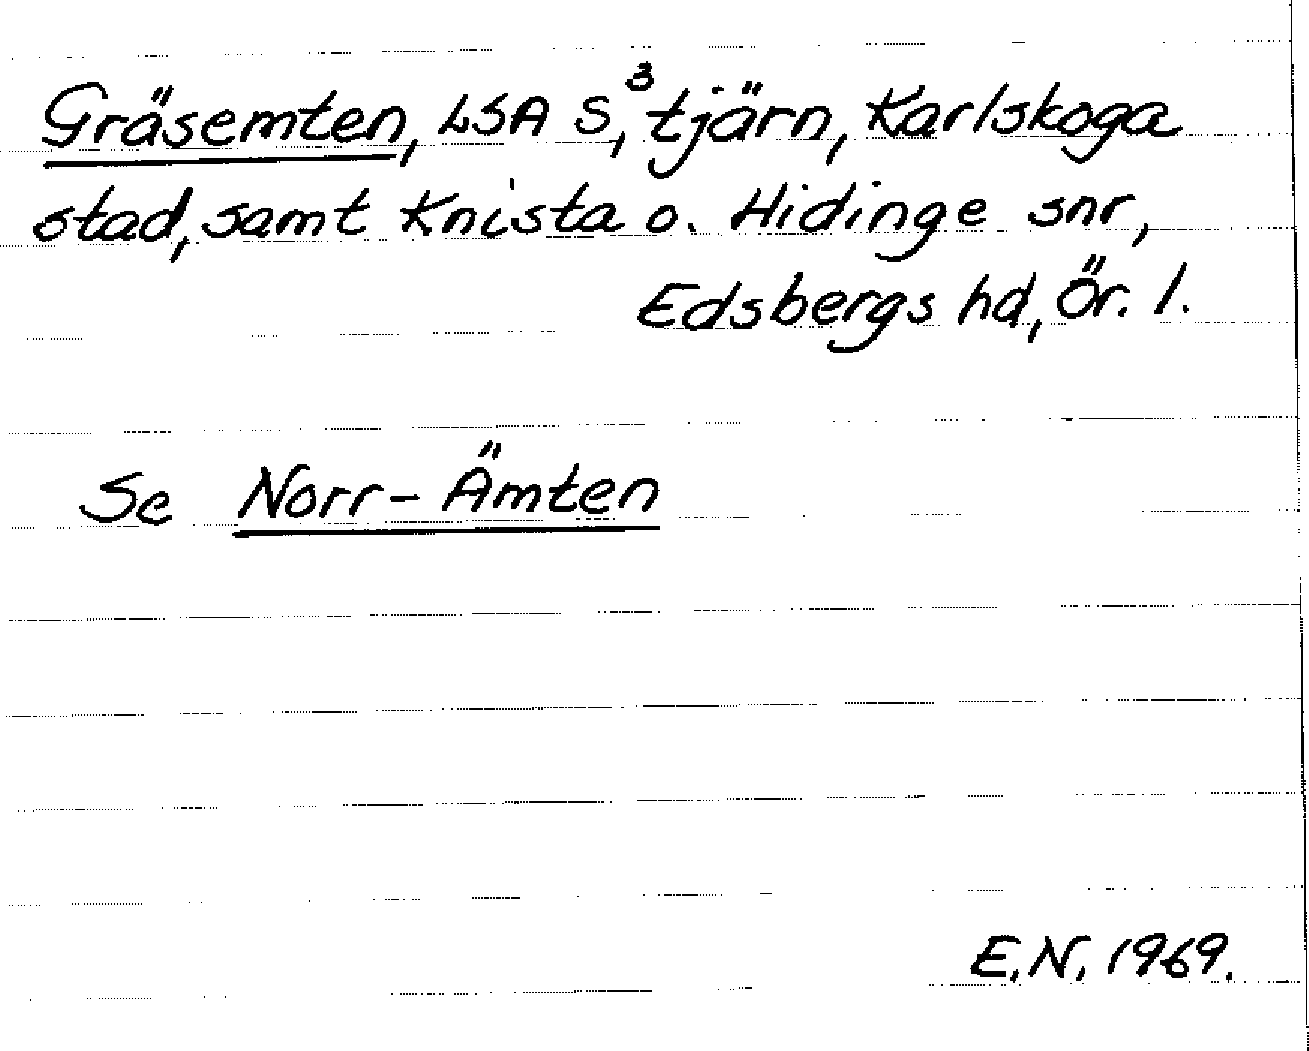 Gräsemten, LSA S³, tjärn, Karlskoga
stad, samt Knista o. Hidinge snr,
Edsbergs hd, Ör. l.
Se Norr-Ämten
E.N. 1969.